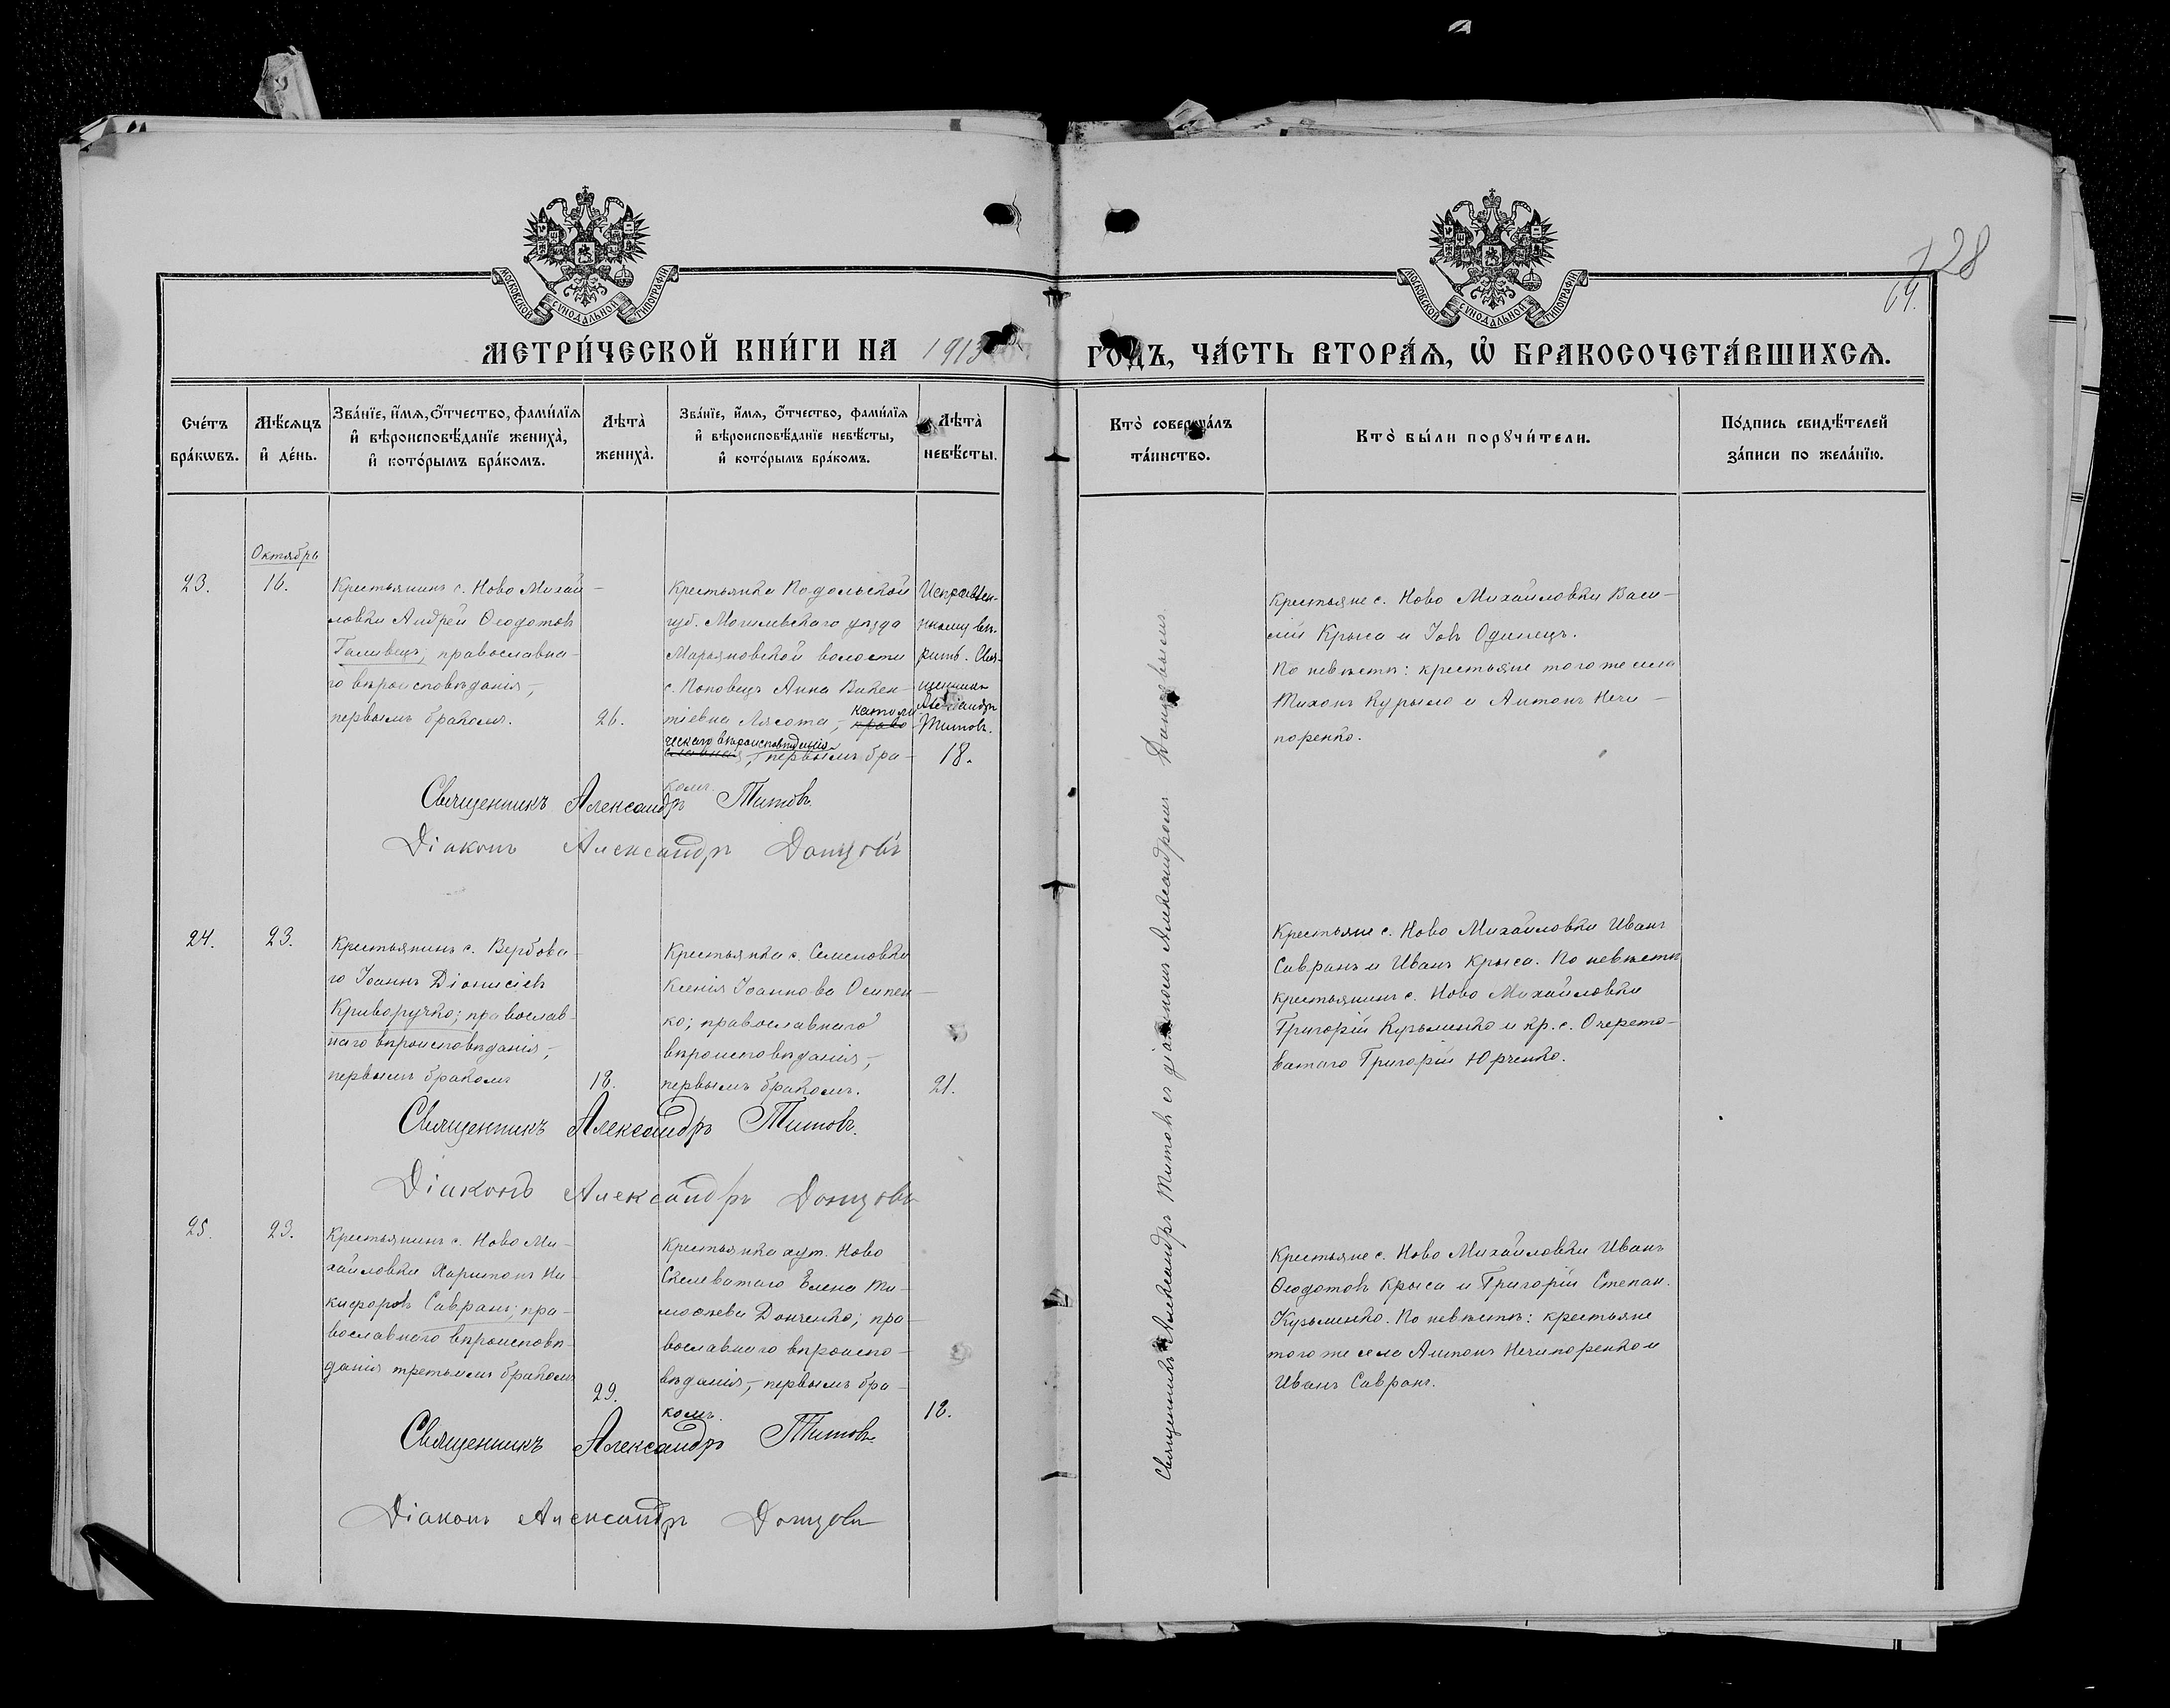 128
64.
МОСКОВСКОЙ СѴНОДАЛЬНОЙ ТИПОГРАФІИ
МОСКОВСКОЙ СѴНОДАЛЬНОЙ ТИПОГРАФІИ
МЕТРИ́ЧЕСКОЙ КНИ́ГИ НА 1913 ГОДЪ, ЧА́СТЬ ВТОРА́Ѧ, Ѽ БРАКОСОЧЕТА́ВШИХСѦ.
Сче́тъ
бра́кѡвъ.
Мѣ́сѧцъ
и҆ де́нь.
Зва́нїе, и҆́мѧ, ѻ҆́тчество, фамилїѧ
и҆ вѣроисповѣ́данїе жениха̀,
и҆ кото́рымъ бра́комъ.
Лѣта̀
жениха̀.
Зва́нїе, и҆́мѧ, ѻ҆́тчество, фамилїѧ
и҆ вѣроисповѣ́данїе невѣ́сты,
и҆ кото́рымъ бра́комъ.
Лѣта̀
невѣ́сты.
Кто̀ соверша́лъ
та́инство.
Кто̀ бы́ли порꙋчи́тели.
По́дпись свидѣ́телей
за́писи по жела́нїю.
Октябрь
23.
16.
Крестьянинъ с. Ново Михай-
ловки Андрей Ѳеодотовъ
Галивецъ, православна-
го вѣроисповѣданія,-
первымъ бракомъ.
26.
Крестьянка Подольской
губ. Могилевскаго уѣзда
Марьяновской волости
с. Поповецъ Анна Викен-
тіевна Лясота,- католи
право
ческаго вѣроисповѣданія
славнаго, первымъ бра-
комъ.
Исправлен-
ному вѣ-
рить. Свя-
щенникъ
Александръ
Титовъ.
18.
Священникъ Александръ Титовъ.
Діаконъ Александръ Донцовъ
Крестьяне с. Ново Михайловки Васи-
лій Крыса и Іовъ Одинецъ.
По невѣстѣ: крестьяне того же села
Тихонъ Курыло и Антонъ Нечи-
поренко.
24.
23.
Крестьянинъ с. Вербова-
го Іоаннъ Діонисіевъ
Криворучко; православ-
наго вѣроисповѣданія,-
первымъ бракомъ
18.
Крестьянка с. Семеновки
Ксенія Іоаннова Осипен-
ко; православнаго
вѣроисповѣданія,-
первымъ бракомъ.
21.
Священникъ Александръ Титовъ.
Діаконъ Александръ Донцовъ
Крестьяне с. Ново Михайловки Иванъ
Савранъ и Иванъ Крыса. По невѣстѣ
крестьянинъ с. Ново Михайловки
Григорій Кузьменко и кр. с. Очерето-
ватаго Григорій Юрченко.
25.
23.
Крестьянинъ с. Ново Ми-
хайловки Харитонъ Ни-
кифоровъ Савранъ; пра-
вославнаго вѣроисповѣ-
данія третьимъ бракомъ
29.
Крестьянка хут. Ново
Скелеватаго Елена Ти-
моѳеева Донченко; пра-
вославнаго вѣроиспо-
вѣданія,- первымъ бра-
комъ.
18.
Священникъ Александръ Титовъ.
Діаконъ Александръ Донцовъ
Крестьяне с. Ново Михайловки Иванъ
Ѳеодотовъ Крыса и Григорій Степан.
Кузьменко. По невѣстѣ: крестьяне
того же села Антонъ Нечипоренко и
Иванъ Савранъ.
Священникъ Александръ Титовъ съ діакономъ Александромъ Донцовымъ.